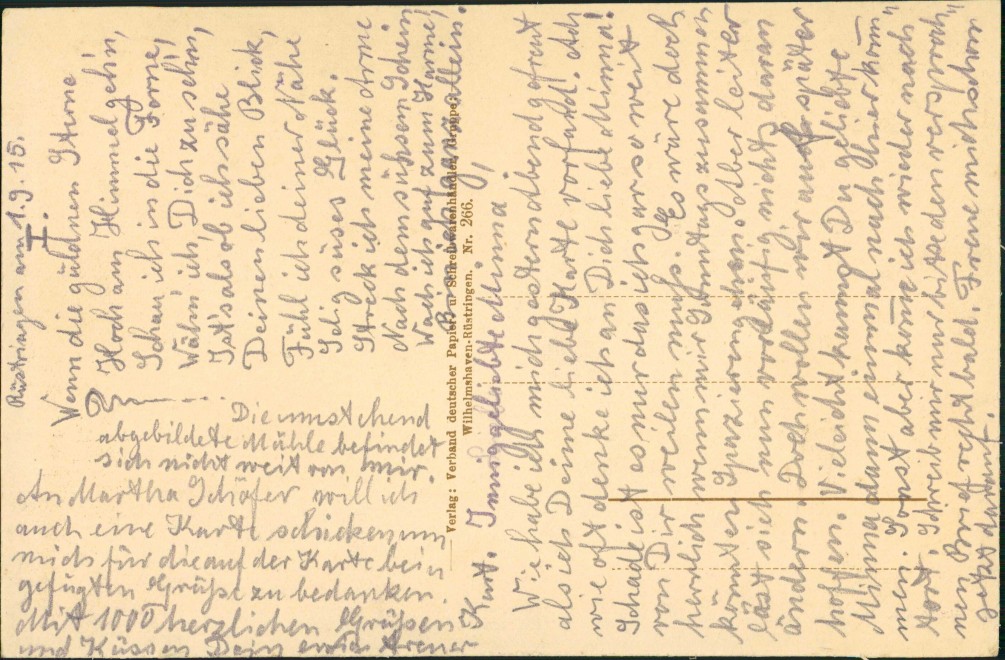 Rüstringen am 1.9.15.
II.
Wenn die güldnen Sterne
Hoch am Himmel gehn,
Schau ich in die Ferne,
Wähn' ich, Dich zu sehn,
Ist's als ob ichs sähe
Deinen lieben Blick,
Fühl ich deiner Nähe
Selig süses Glück.
Streck ich meine Arme
Nach dem süssen Schein
Wach ich auf zum Harme,
Bin allein.
Inniggeliebte Minna,
Wie habe ich mich gestern Abend gefreut
als ich Deine liebe Karte vorfand. Ach
wie oft denke ich an Dich liebe Minna!
Schade ist es nur das ich gar so weit
von Dir weilen muß. Es wäre doch
herrlich wenn wir Sonntags zusammen
könnten Spazieren gehen. Aber leiter
läst sich nun vorläufig nicht daran
ändern. Doch wollen wir auf später
hoffen. Vieleicht kannst Du geliebte
Minna dann einmal nach hier kom=
men. Sonst aber komme ich wieder nach
dort. Schreib mir nur bitte den versproch=
nen Brief recht bald. Freue mich schon
jetzt darauf.
Die umstehend
abgebildete Mühle befindet
sich nicht weit von mir.
An Martha Schöfer will ich
auch eine Karte schicken um
mich für die auf der Karte bei=
gefügten Grüße zu bedanken.
Mit 1000 herzlichen Grüßen
und Küssen Dein treuer
Kurt.
Verlag: Verband deutscher Papier- u Schreibwarenhändler, Gruppe
Wilhelmshaven-Rüstringen. Nr. 266.